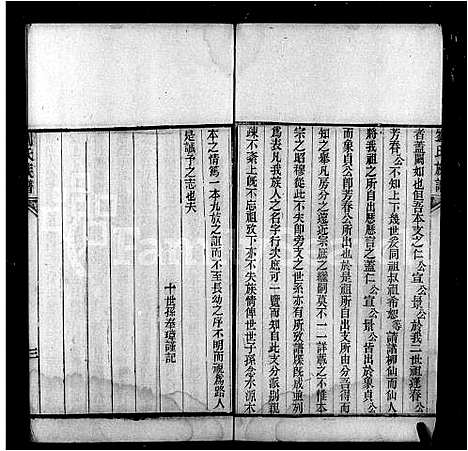 者蓋闕如也但吾本支之仁公宣公景公於我二世祖蓬春公
芳春公不知上下幾世委同祖叔祖希恕等請諸柳仙而仙人
將我祖之所自出歷歷言之蓋仁公宣公景公皆出於象貞公
而象貞公即芳春公所出也於是祖所自出支所分出靡不
知之畢凡房分之遠近宗庶之繼嗣莫不一二詳載之不惟本
宗之昭穆從此不失即旁支之世系亦有所攷譜成並列
為表凡我族人之名字行次庶可一覽而知自此支分派別親
疎不紊上旣不忘祖攷下亦不失族情俾世世子孫念水源木
本之情篤一本九族之誼而不至長幼之序不明而視為路人
是誠予之志也夫
十世孫奉璋謹記
劉氏族譜
三